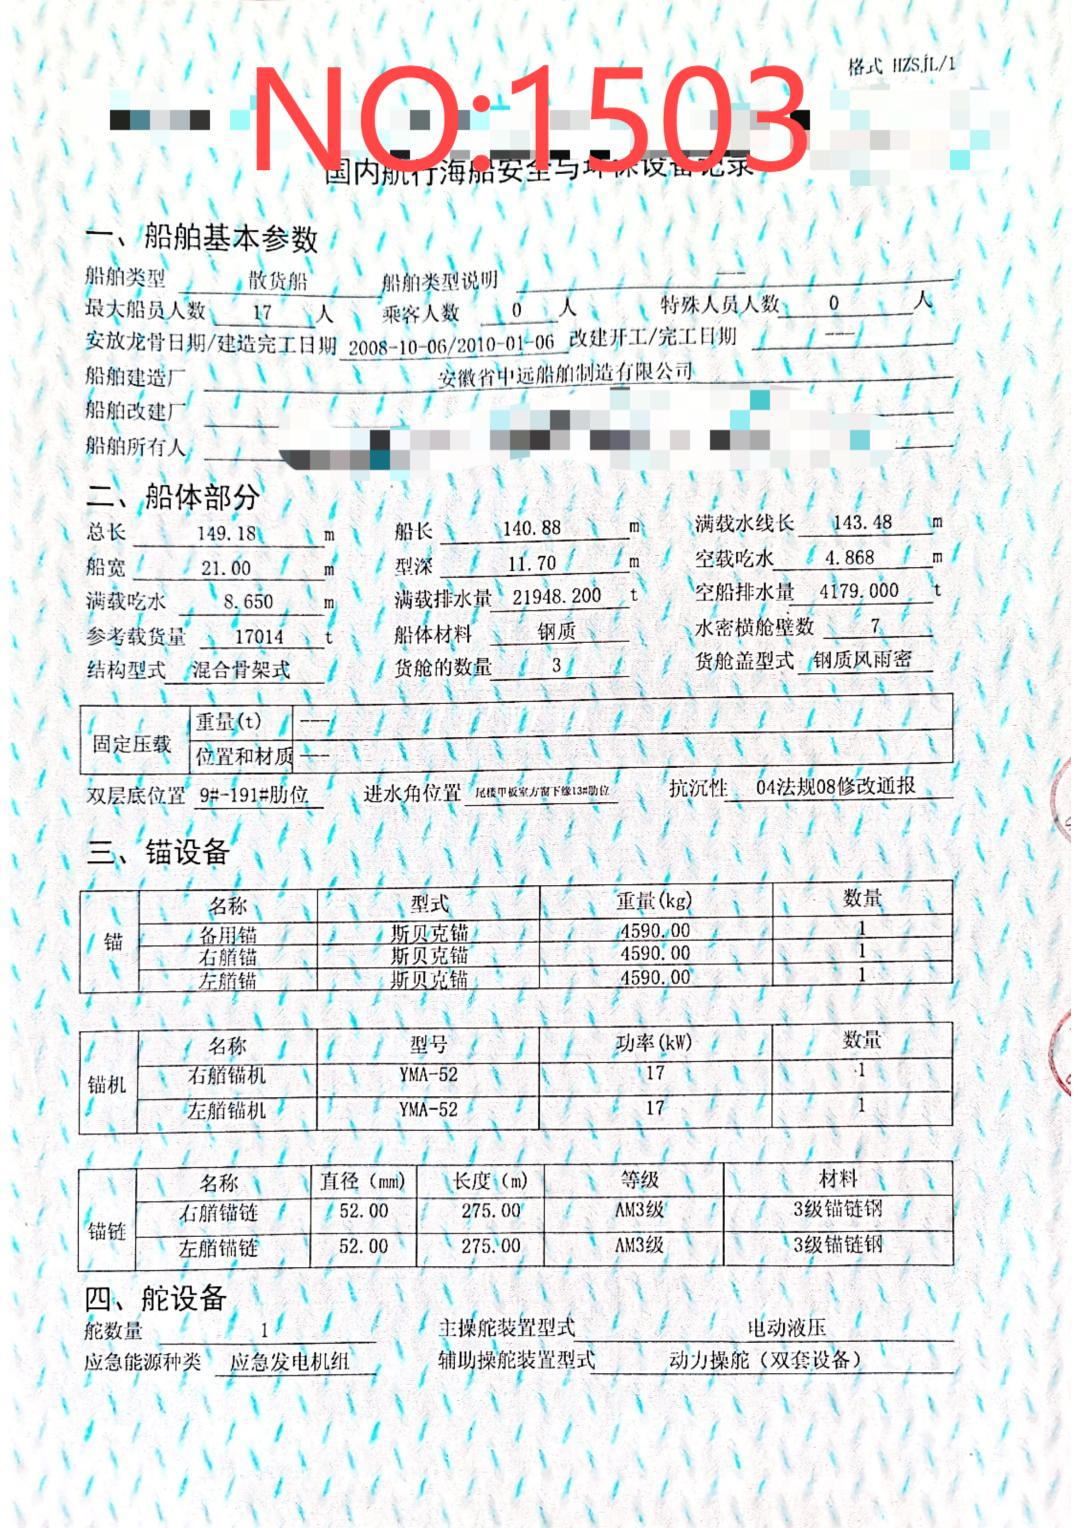 格式 HZSJL/1
NO:1503
国内航行海船安全与环保设备记录
一、船舶基本参数
船舶类型 散货船 船舶类型说明 ---
最大船员人数 17 人 乘客人数 0 人 特殊人员人数 0 人
安放龙骨日期/建造完工日期 2008-10-06/2010-01-06 改建开工/完工日期 ---
船舶建造厂 安徽省中远船舶制造有限公司
船舶改建厂
船舶所有人
二、船体部分
总长 149.18 m 船长 140.88 m 满载水线长 143.48 m
船宽 21.00 m 型深 11.70 m 空载吃水 4.868 m
满载吃水 8.650 m 满载排水量 21948.200 t 空船排水量 4179.000 t
参考载货量 17014 t 船体材料 钢质 水密横舱壁数 7
结构型式 混合骨架式 货舱的数量 3 货舱盖型式 钢质风雨密
固定压载 重量(t) ---
位置和材质 ---
双层底位置 9#-191#肋位 进水角位置 尾楼甲板室方窗下缘13#肋位 抗沉性 04法规08修改通报
三、锚设备
锚 名称 型式 重量(kg) 数量
备用锚 斯贝克锚 4590.00 1
右艏锚 斯贝克锚 4590.00 1
左艏锚 斯贝克锚 4590.00 1
锚机 名称 型号 功率(kW) 数量
右艏锚机 YMA-52 17 1
左艏锚机 YMA-52 17 1
锚链 名称 直径(mm) 长度(m) 等级 材料
右艏锚链 52.00 275.00 AM3级 3级锚链钢
左艏锚链 52.00 275.00 AM3级 3级锚链钢
四、舵设备
舵数量 1 主操舵装置型式 电动液压
应急能源种类 应急发电机组 辅助操舵装置型式 动力操舵(双套设备)